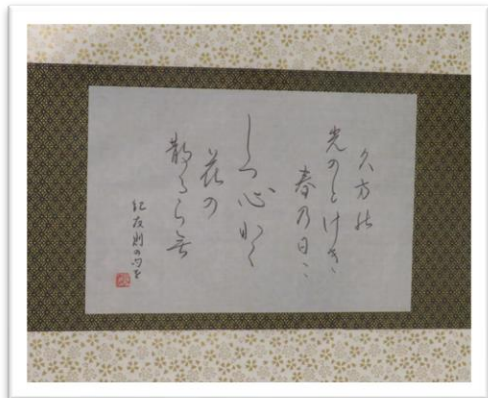 久方の
光のとけき
春乃日に
しつ心なく
花の
散るらむ
紀友則の句を